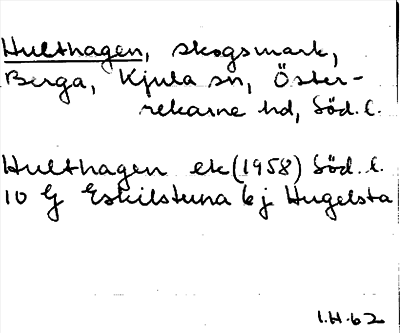 Hulthagen, skogsmark,
Berga, Kjula sn, Öster-
rekarne hd, Söd. l.
Hulthagen ek (1958) Söd. l.
10 G Eskilstuna 6 j Hugelsta
I.H. 62